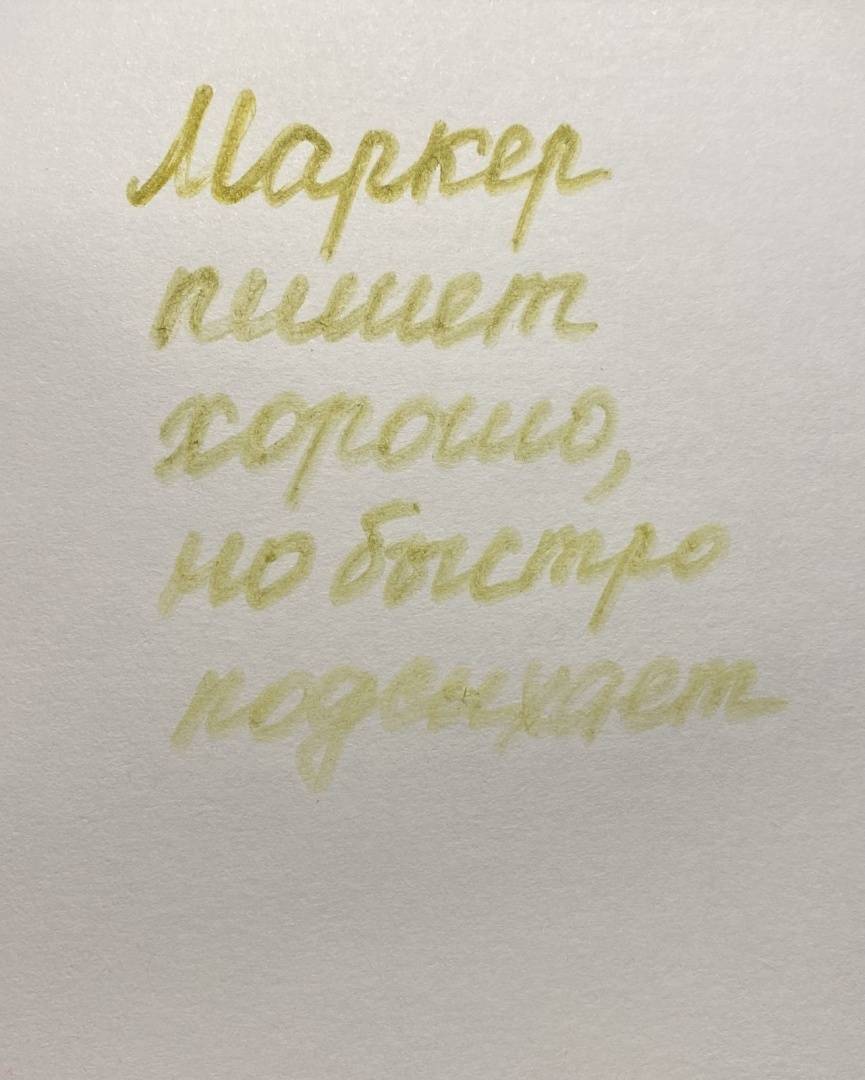 Маркер
пишет
хорошо,
но быстро
подвыхает